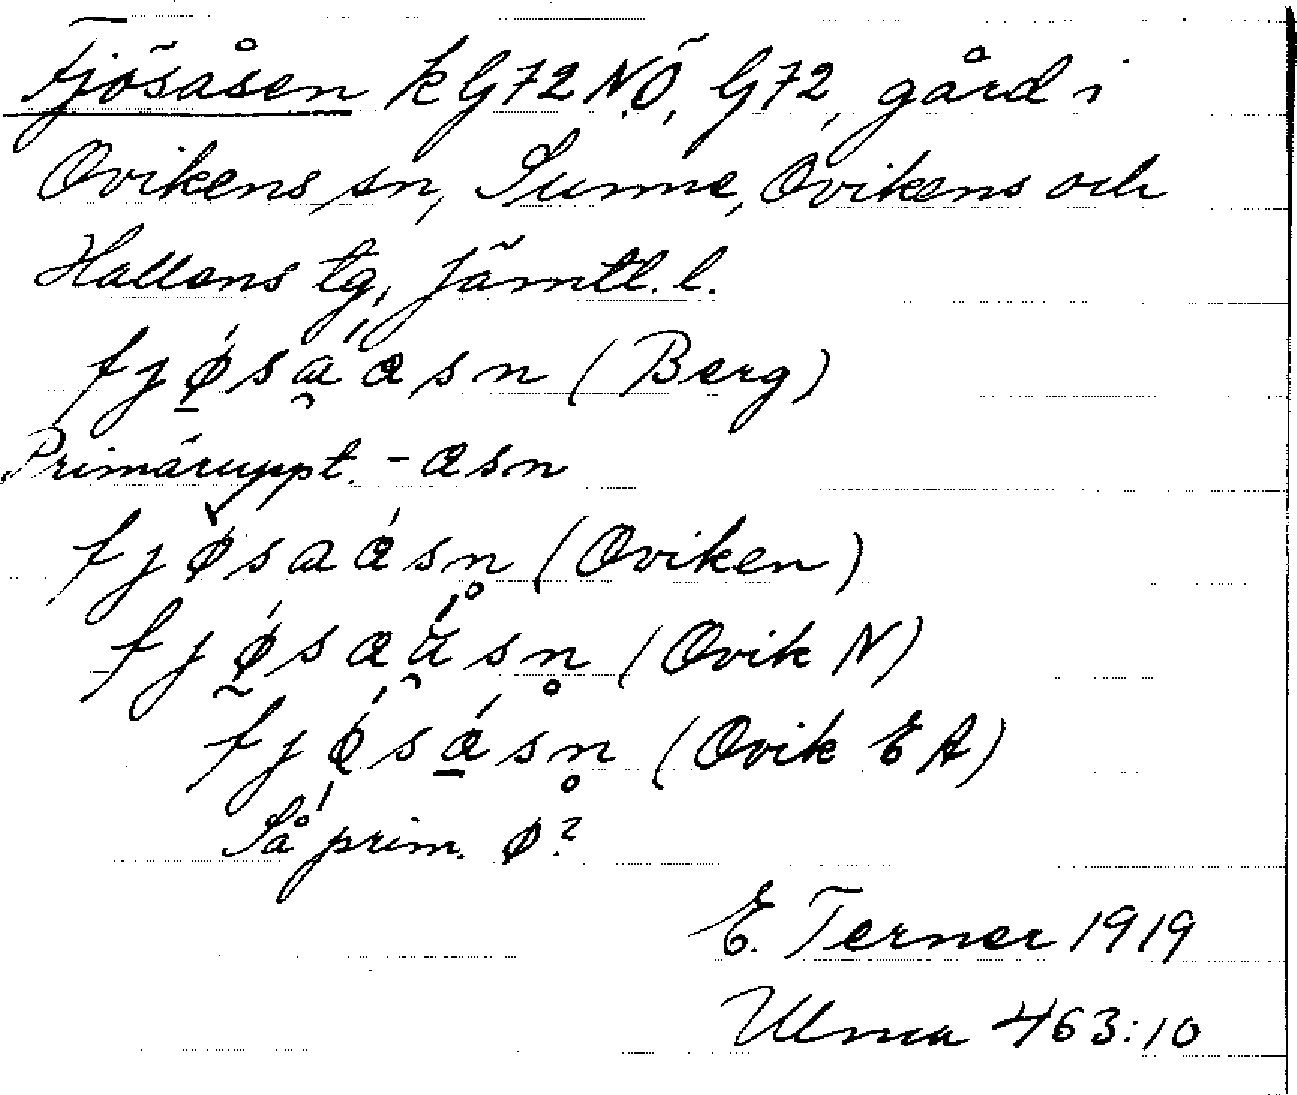 Fjösåsen kG72NÖ, G72, gård i
Ovikens sn, Sunne, Ovikens och
Hallens tg, Jämtl. l.
fjǿ̱sa̯ǻæsn (Berg)
Primäruppt. -æsn
fjøsaǽsn̥ (Oviken)
fjǿ̰sæa̯̋sn̥ (Ovik N)
fjǿ̨sá̱sn̥ (Ovik EA)
Så prim. ø?
E. Terner 1919
Ulma 463:10